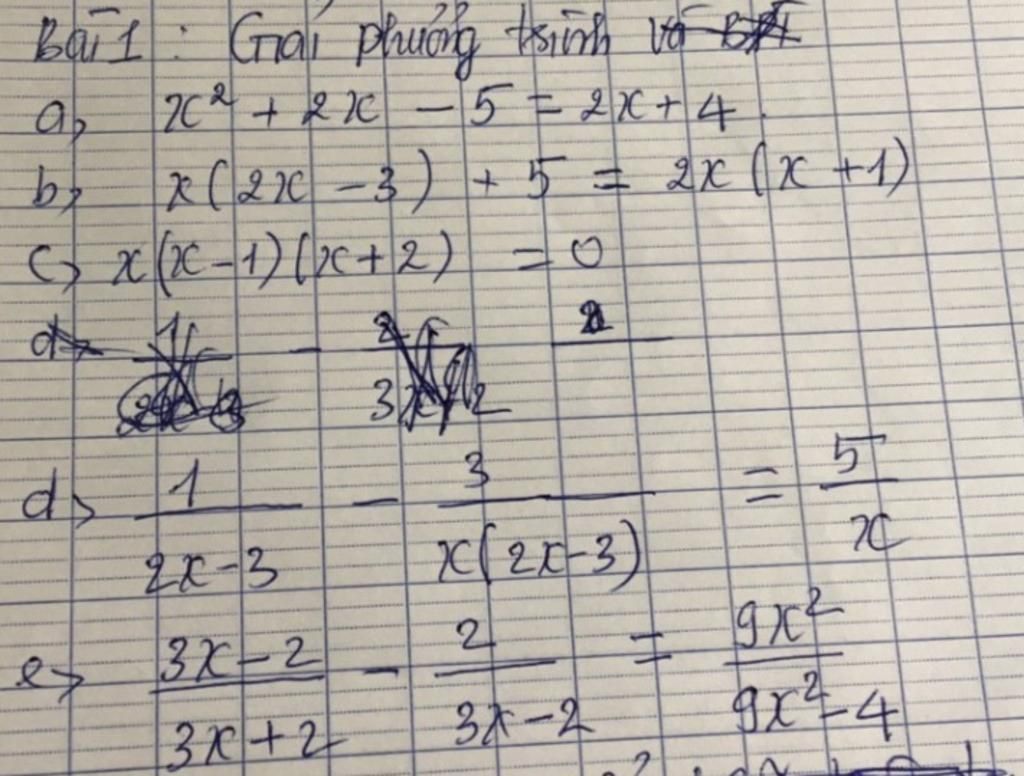 Bài 1 : Giải phương trình và
a, x² + 2x - 5 = 2x + 4
b, x(2x - 3) + 5 = 2x(x + 1)
c, x(x - 1)(x + 2) = 0
d, 1/(2x - 3) - 3/(x(2x - 3)) = 5/x
e, (3x - 2)/(3x + 2) - 2/(3x - 2) = 9x²/(9x² - 4)